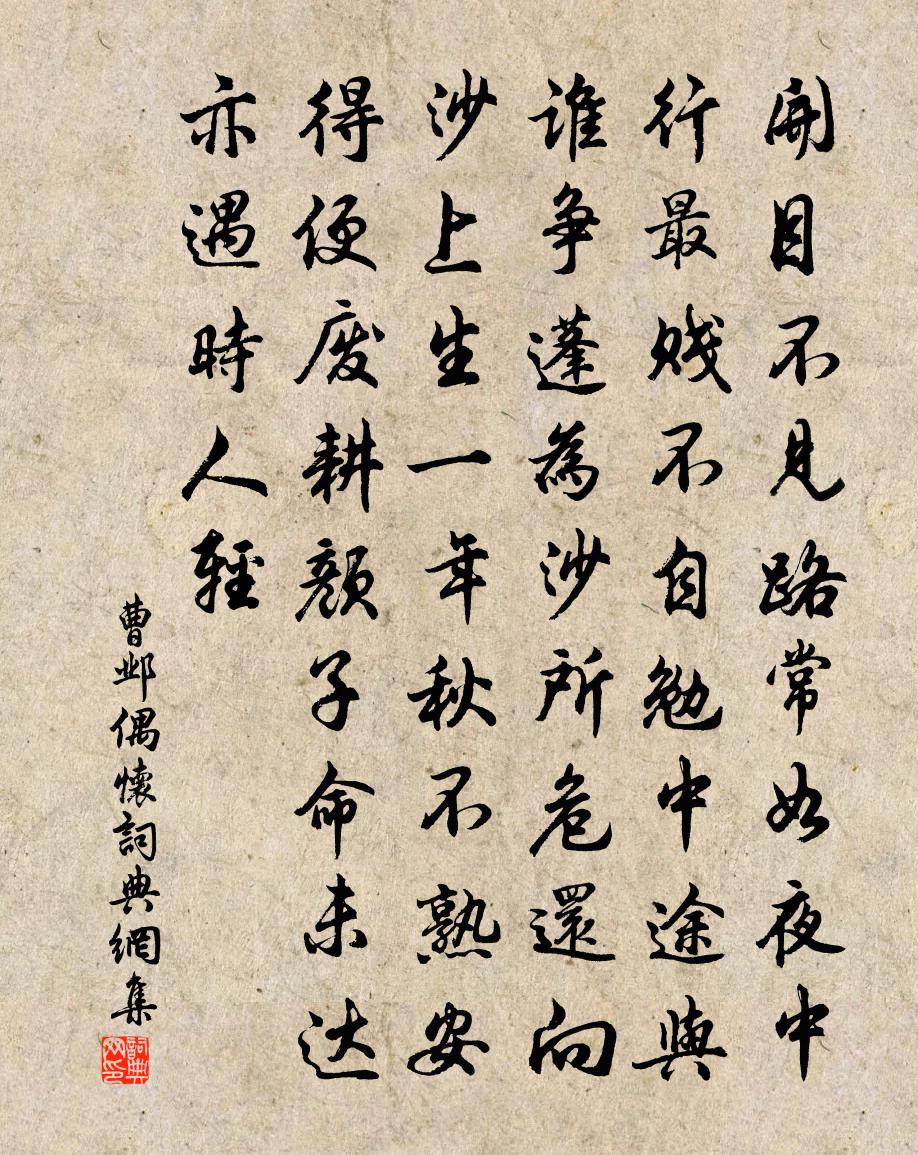 開目不見路常如夜中
行最賤不自勉中途與
誰爭蓬為沙所危還向
沙上生一年秋不熟安
得便废耕顏子命未达
亦遇時人輕
曹邺偶懷詞典網集
詞典网印